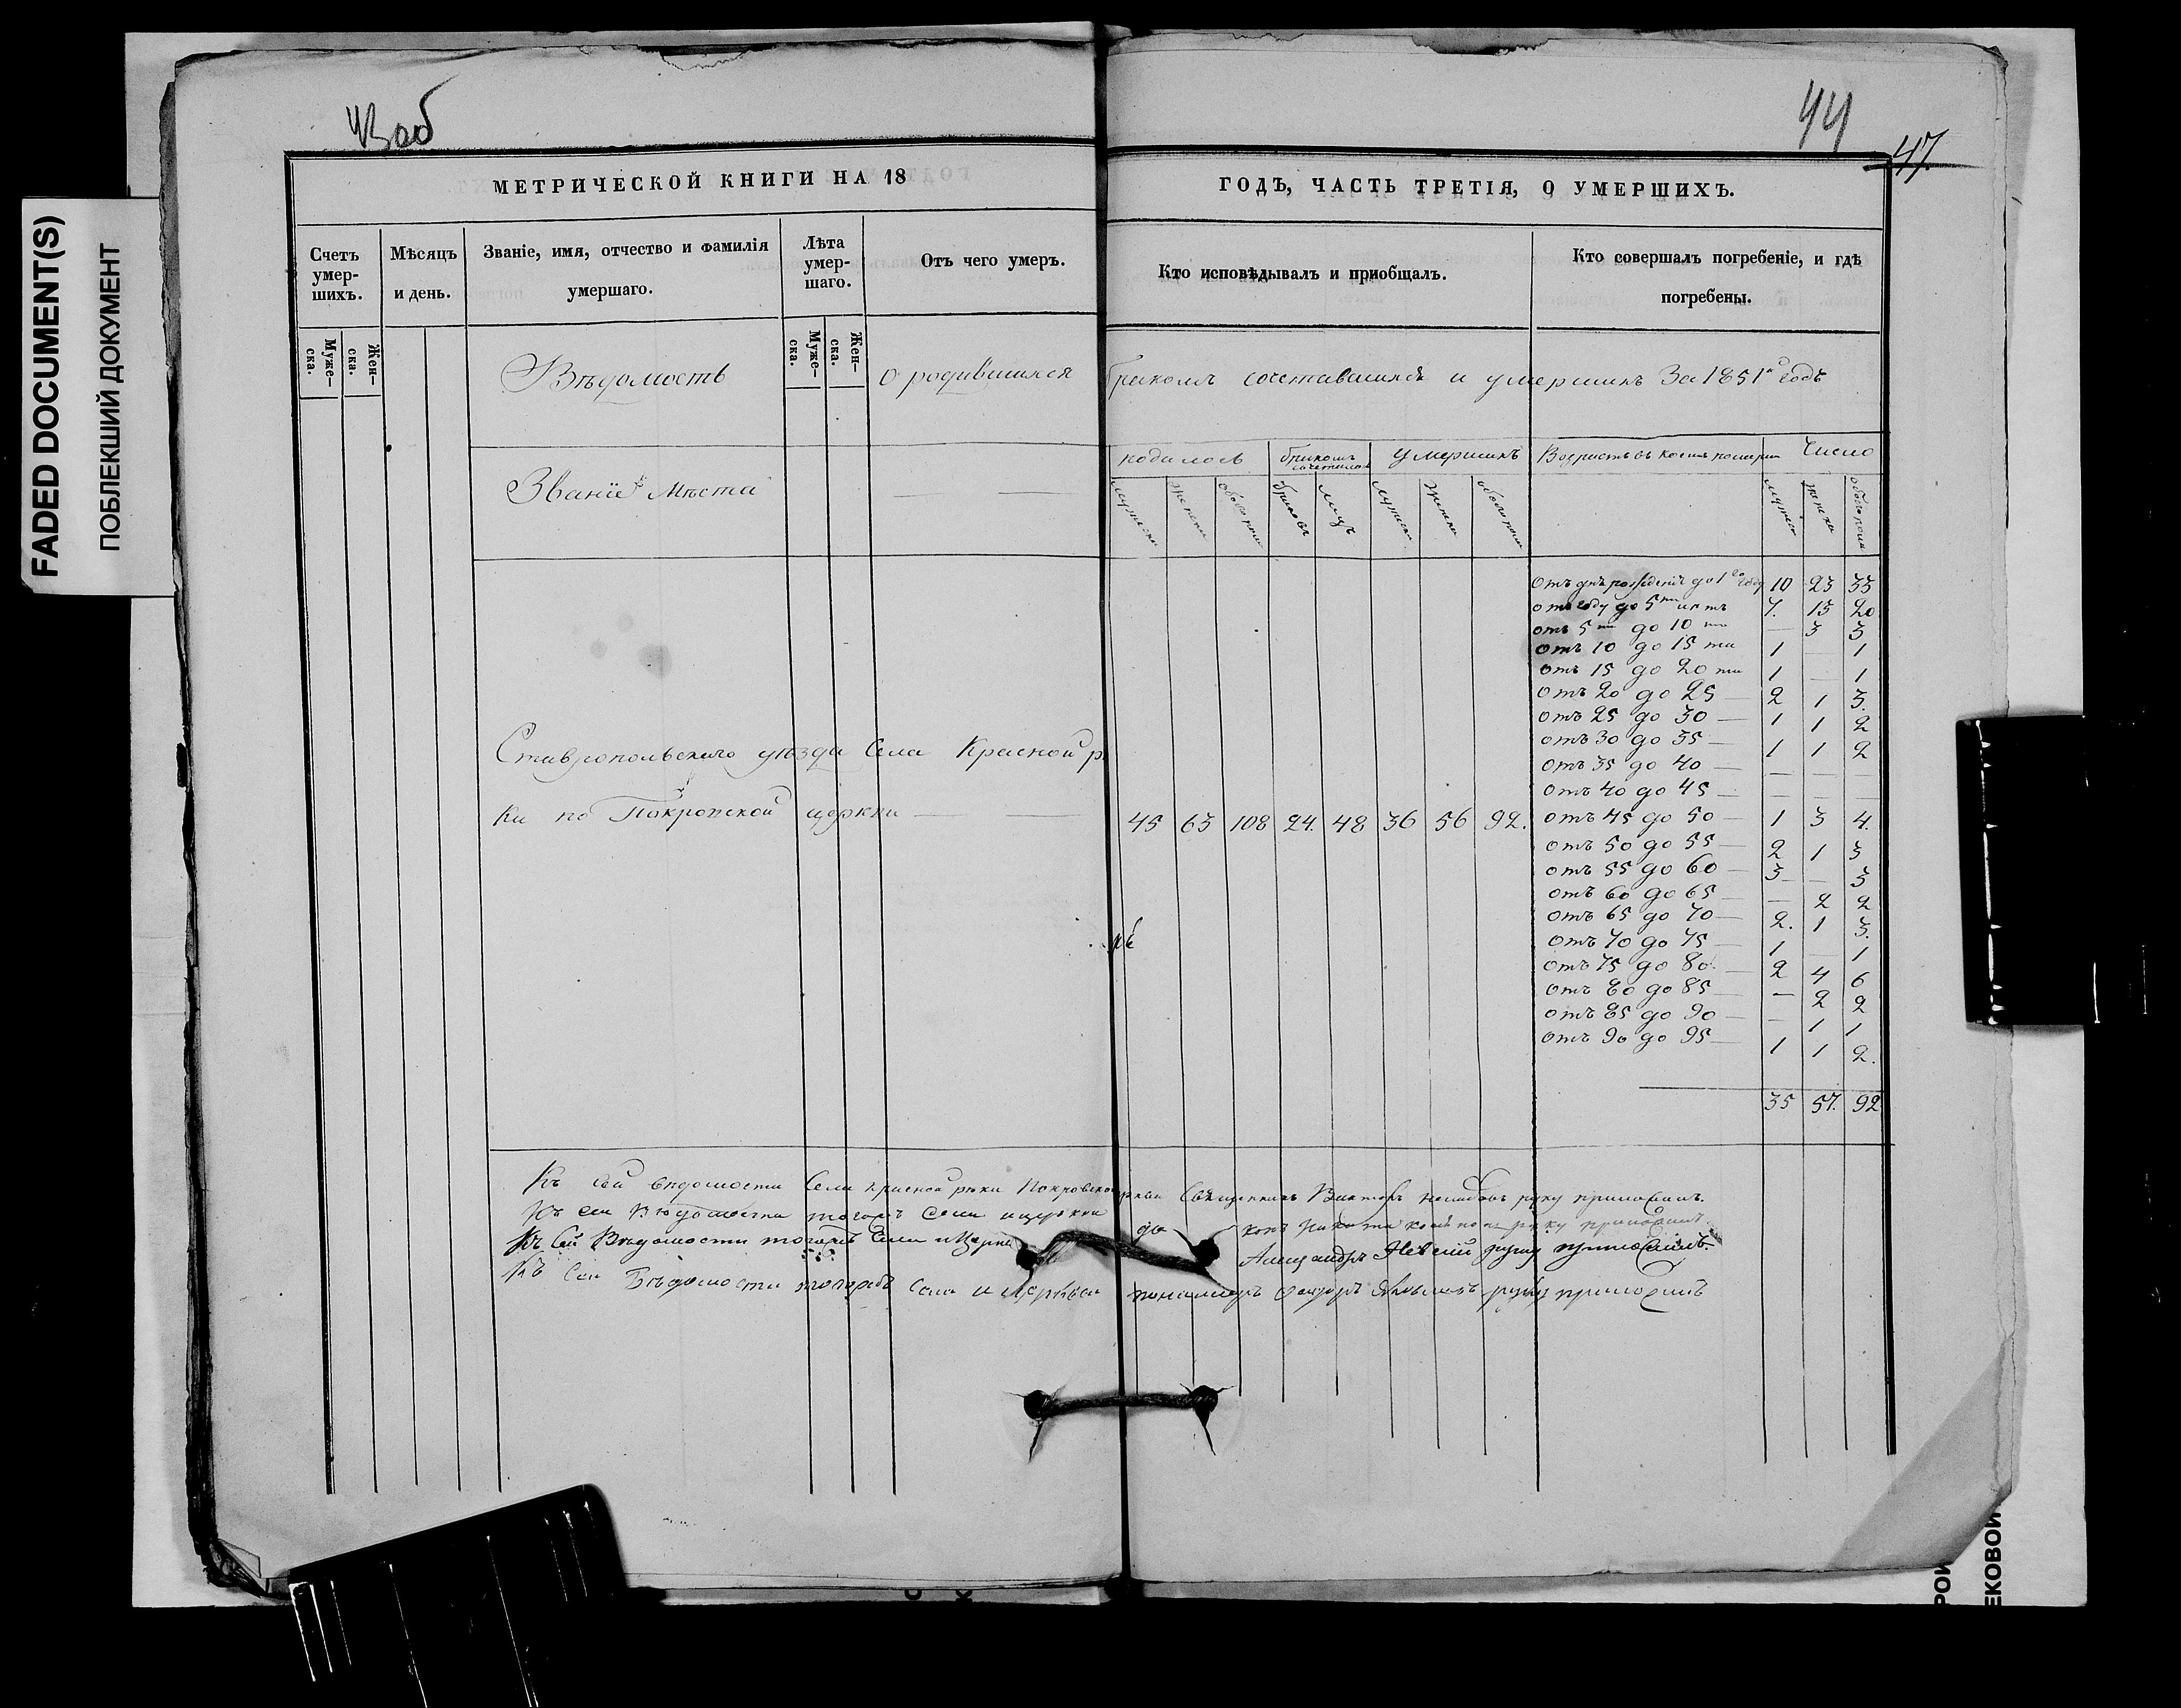 FADED DOCUMENT(S)
ПОБЛЕКШИЙ ДОКУМЕНТ
43 об
44
47.
МЕТРИЧЕСКОЙ КНИГИ НА 18 ГОДЪ, ЧАСТЬ ТРЕТІЯ, О УМЕРШИХЪ.
Счетъ умер-шихъ.
Мѣсяцъ и день.
Званіе, имя, отчество и фамилія умершаго.
Лѣта умер-шаго.
Отъ чего умеръ.
Кто исповѣдывалъ и пріобщалъ.
Кто совершалъ погребеніе, и гдѣ погребены.
Муже-ска. Жен-ска. Муже-ска. Жен-ска.
Вѣдомость о родившихся бракомъ сочетавшихся и умершихъ за 1851й годъ
Званіе Мѣста
родилось бракомъ сочеталось умершихъ Возрастъ въ коемъ померли Число
мужеска женска обоего пола браковъ лицъ мужеска женска обоего пола мужеска женска обоего пола
Отъ дня рожденія до 1го году 10 23 33
отъ году до 5ти лѣтъ 7. 13 20
отъ 5ти до 10ти — 3 3
отъ 10 до 15ти 1 — 1
отъ 15 до 20ти 1 — 1
отъ 20 до 25 — 2 1 3.
отъ 25 до 30 — 1 1 2
отъ 30 до 35 — 1 1 2
отъ 35 до 40 — — — —
отъ 40 до 45 — — — —
отъ 45 до 50 — 1 3 4.
отъ 50 до 55 — 2 1 3
отъ 55 до 60 — 3 — 3
отъ 60 до 65 — — 2 2
отъ 65 до 70 — 2. 1 3.
отъ 70 до 75 — 1 — 1
отъ 75 до 80. — 2 4 6
отъ 80 до 85 — — 2 2
отъ 85 до 90 — — 1 1
отъ 90 до 95 — 1 1 2.
35 57. 92
Ставропольскаго уѣзда Села Красной рѣ
ки по Покровской церкви — — 45 63 108 24. 48 36 56 92.
Къ сей вѣдомости Села Красной рѣки Покровской церкви Священникъ Викторъ руку приложилъ.
Къ сей Вѣдомости тогожъ Села и церкви діаконъ Никита руку приложилъ.
Къ сей Вѣдомости тогожъ Села и Церкви Александръ Невскій руку приложилъ.
Къ сей Вѣдомости тогожъ села и церкви пономарь Ѳедоръ руку приложилъ
ЕКОВОЙ